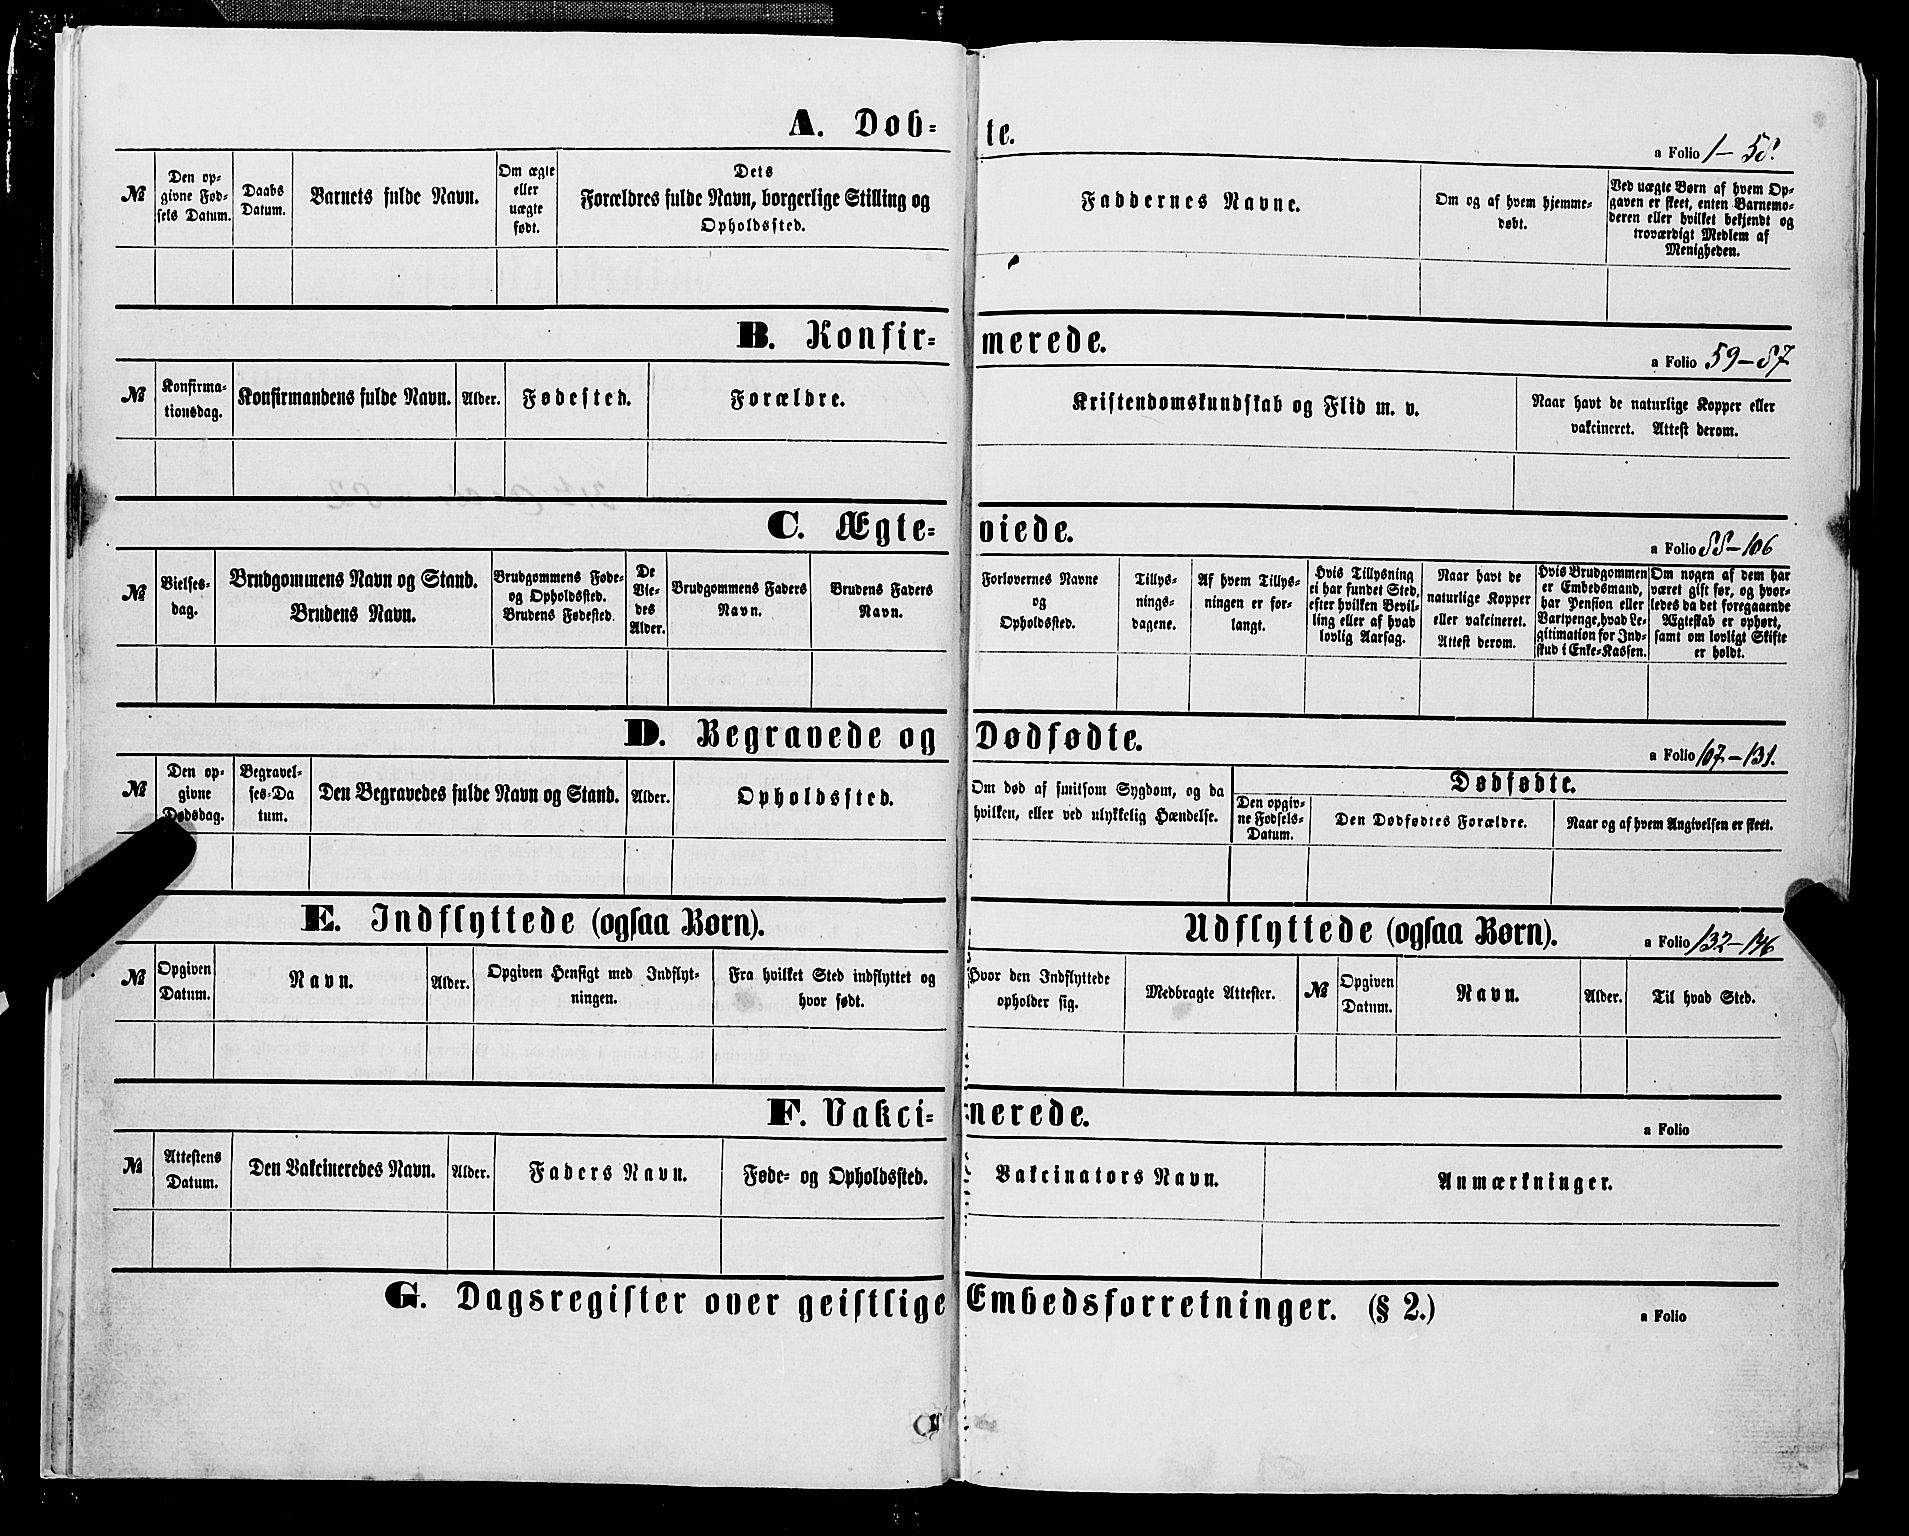 A. Døb-te.
a Folio 1-58.
№
Den op-
givne Fød-
sels Datum.
Daabs
Datum.
Barnets fulde Navn.
Om ægte
eller
uægte
født.
Dets
Forældres fulde Navn, borgerlige Stilling og
Opholdssted.
Faddernes Navne.
Om og af hvem hjemme-
døbt.
Ved uægte Børn af hvem Op-
gaven er skeet, enten Barnemo-
deren eller hvilket bekjendt og
troværdigt Medlem af
Menigheden.
B. Konfir-merede.
a Folio 59-87
№
Konfirma-
tionsdag.
Konfirmandens fulde Navn.
Alder.
Fødested.
Forældre.
Kristendomskundskab og Flid m. v.
Naar havt de naturlige Kopper eller
vakcineret. Attest derom.
C. Ægte-viede.
a Folio 88-106
№
Vielses-
dag.
Brudgommens Navn og Stand.
Brudens Navn.
Brudgommens Føde-
og Opholdssted.
Brudens Fødested.
De
Vie-
des
Alder.
Brudgommens Faders
Navn.
Brudens Faders
Navn.
Forlovernes Navne
og
Opholdssted.
Tillys-
nings-
dagene.
Af hvem Tillys-
ningen er for-
langt.
Hvis Tillysning
ei har fundet Sted,
efter hvilken Bevil-
ling eller af hvad
lovlig Aarsag.
Naar havt de
naturlige Kopper
eller vakcineret.
Attest derom.
Hvis Brudgommen
er Embedsmand,
har Pension eller
Vartpenge, hvad Le-
gitimation for Ind-
skud i Enke-Kassen.
Om nogen af dem har
været gift før, og hvor-
ledes da det foregaaende
Ægteskab er ophørt,
samt om lovligt Skifte
er holdt.
D. Begravede og Dødfødte.
a Folio 107-131.
№
Den op-
givne
Dødsdag.
Begravel-
ses-Da
tum.
Den Begravedes fulde Navn og Stand.
Alder.
Opholdssted.
Om død af smitsom Sygdom, og da
hvilken, eller ved ulykkelig Hændelse.
Dødfødte.
Den opgiv-
ne Fødsels-
Datum.
Den Dødfødtes Forældre.
Naar og af hvem Angivelsen er skeet.
E. Indflyttede (ogsaa Børn).
Udflyttede (ogsaa Børn).
a Folio 132-146
№
Opgiven
Datum.
Navn.
Alder.
Opgiven Hensigt med Indflyt-
ningen.
Fra hvilket Sted indflyttet og
hvor født.
Hvor den Indflyttede
opholder sig.
Medbragte Attester.
№
Opgiven
Datum.
Navn.
Alder.
Til hvad Sted.
F. Vakci-nerede.
a Folio
№
Attestens
Datum.
Den Vakcineredes Navn.
Alder.
Faders Navn.
Føde- og Opholdssted.
Vakcinators Navn.
Anmærkninger.
G. Dagsregister over geistlige Embedsforretninger. (§ 2.)
a Folio